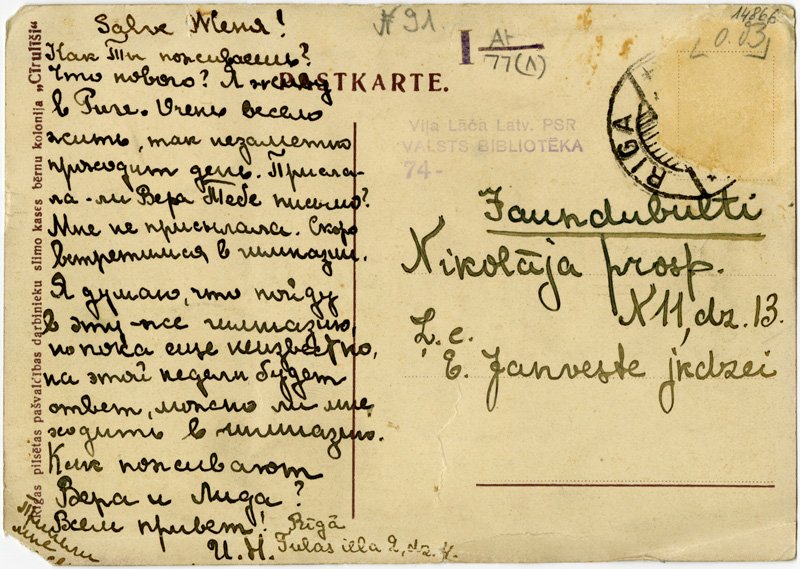 Salve Женя!
Как Ты поживаешь?
Что нового? Я живу
в Риге. Очень весело
жить, так незаметно
приходит день. Присла-
ла-ли Вера Тебе письмо?
Мне не присылала. Скоро
встретимся в гимназии.
Я думаю, что пойду
в эту-же гимназию,
но пока еще неизвестно,
на этой недели будет
ответ, можно ли мне
ходить в гимназию.
Как поживают
Вера и Лида?
Всем привет!
И. Н.
Rīgā
Tulas iela 2, dz. 4.
Пиши
мне
Rīgas pilsētas pašvaldības darbinieku slimo kases bērnu kolonija „Cīrulīši“
POSTKARTE.
№ 91
I
At
77(Λ)
14866
0.03
Viļa Lāča Latv. PSR
VALSTS BIBLIOTĒKA
74-
RIGA
Jaundubulti
Nikolāja prosp.
N 11, dz. 13.
Ļ. c.
E. Janveste jkdzei